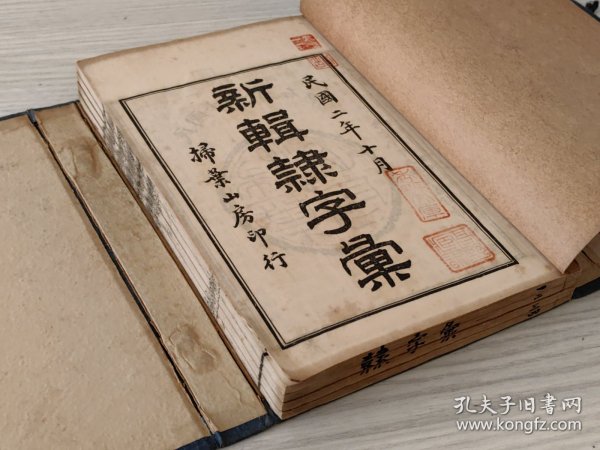 民國二年十月
新輯隸字彙
掃葉山房印行
隸字彙
孔夫子旧书网
www.kongfz.com